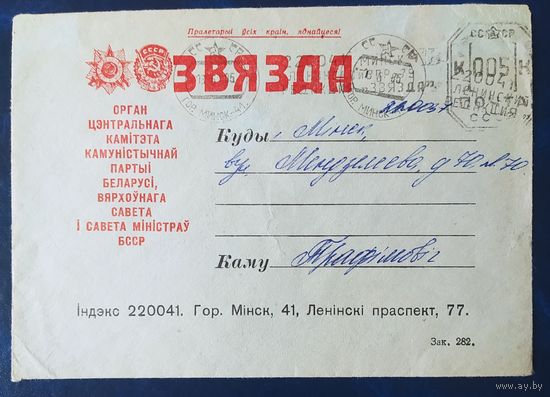 Пралетарыі ўсіх краін, яднайцеся!
СССР
ЗВЯЗДА
СССР
К 005 К
ГОР. МИНСК-41
ОРГАН
ЦЭНТРАЛЬНАГА
КАМІТЭТА
КАМУНІСТЫЧНАЙ
ПАРТЫІ
БЕЛАРУСІ,
ВЯРХОЎНАГА
САВЕТА
І САВЕТА МІНІСТРАЎ
БССР
Куды Мінск,
вул Менделеева, д
Каму Трафімовіч
Індэкс 220041. Гор. Мінск, 41, Ленінскі праспект, 77.
Зак. 282.
www.ay.by